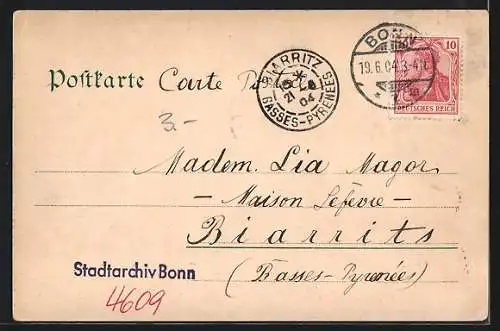 BONN
19.6.04.3-4N.
10
DEUTSCHES REICH
BIARRITZ
21
04
BASSES-PYRENEES
Postkarte Carte
3.-
Madem. Lia Magor
- Maison Lefèvre -
Biarrits
(Basses-Pyrenées)
Stadtarchiv Bonn
4609